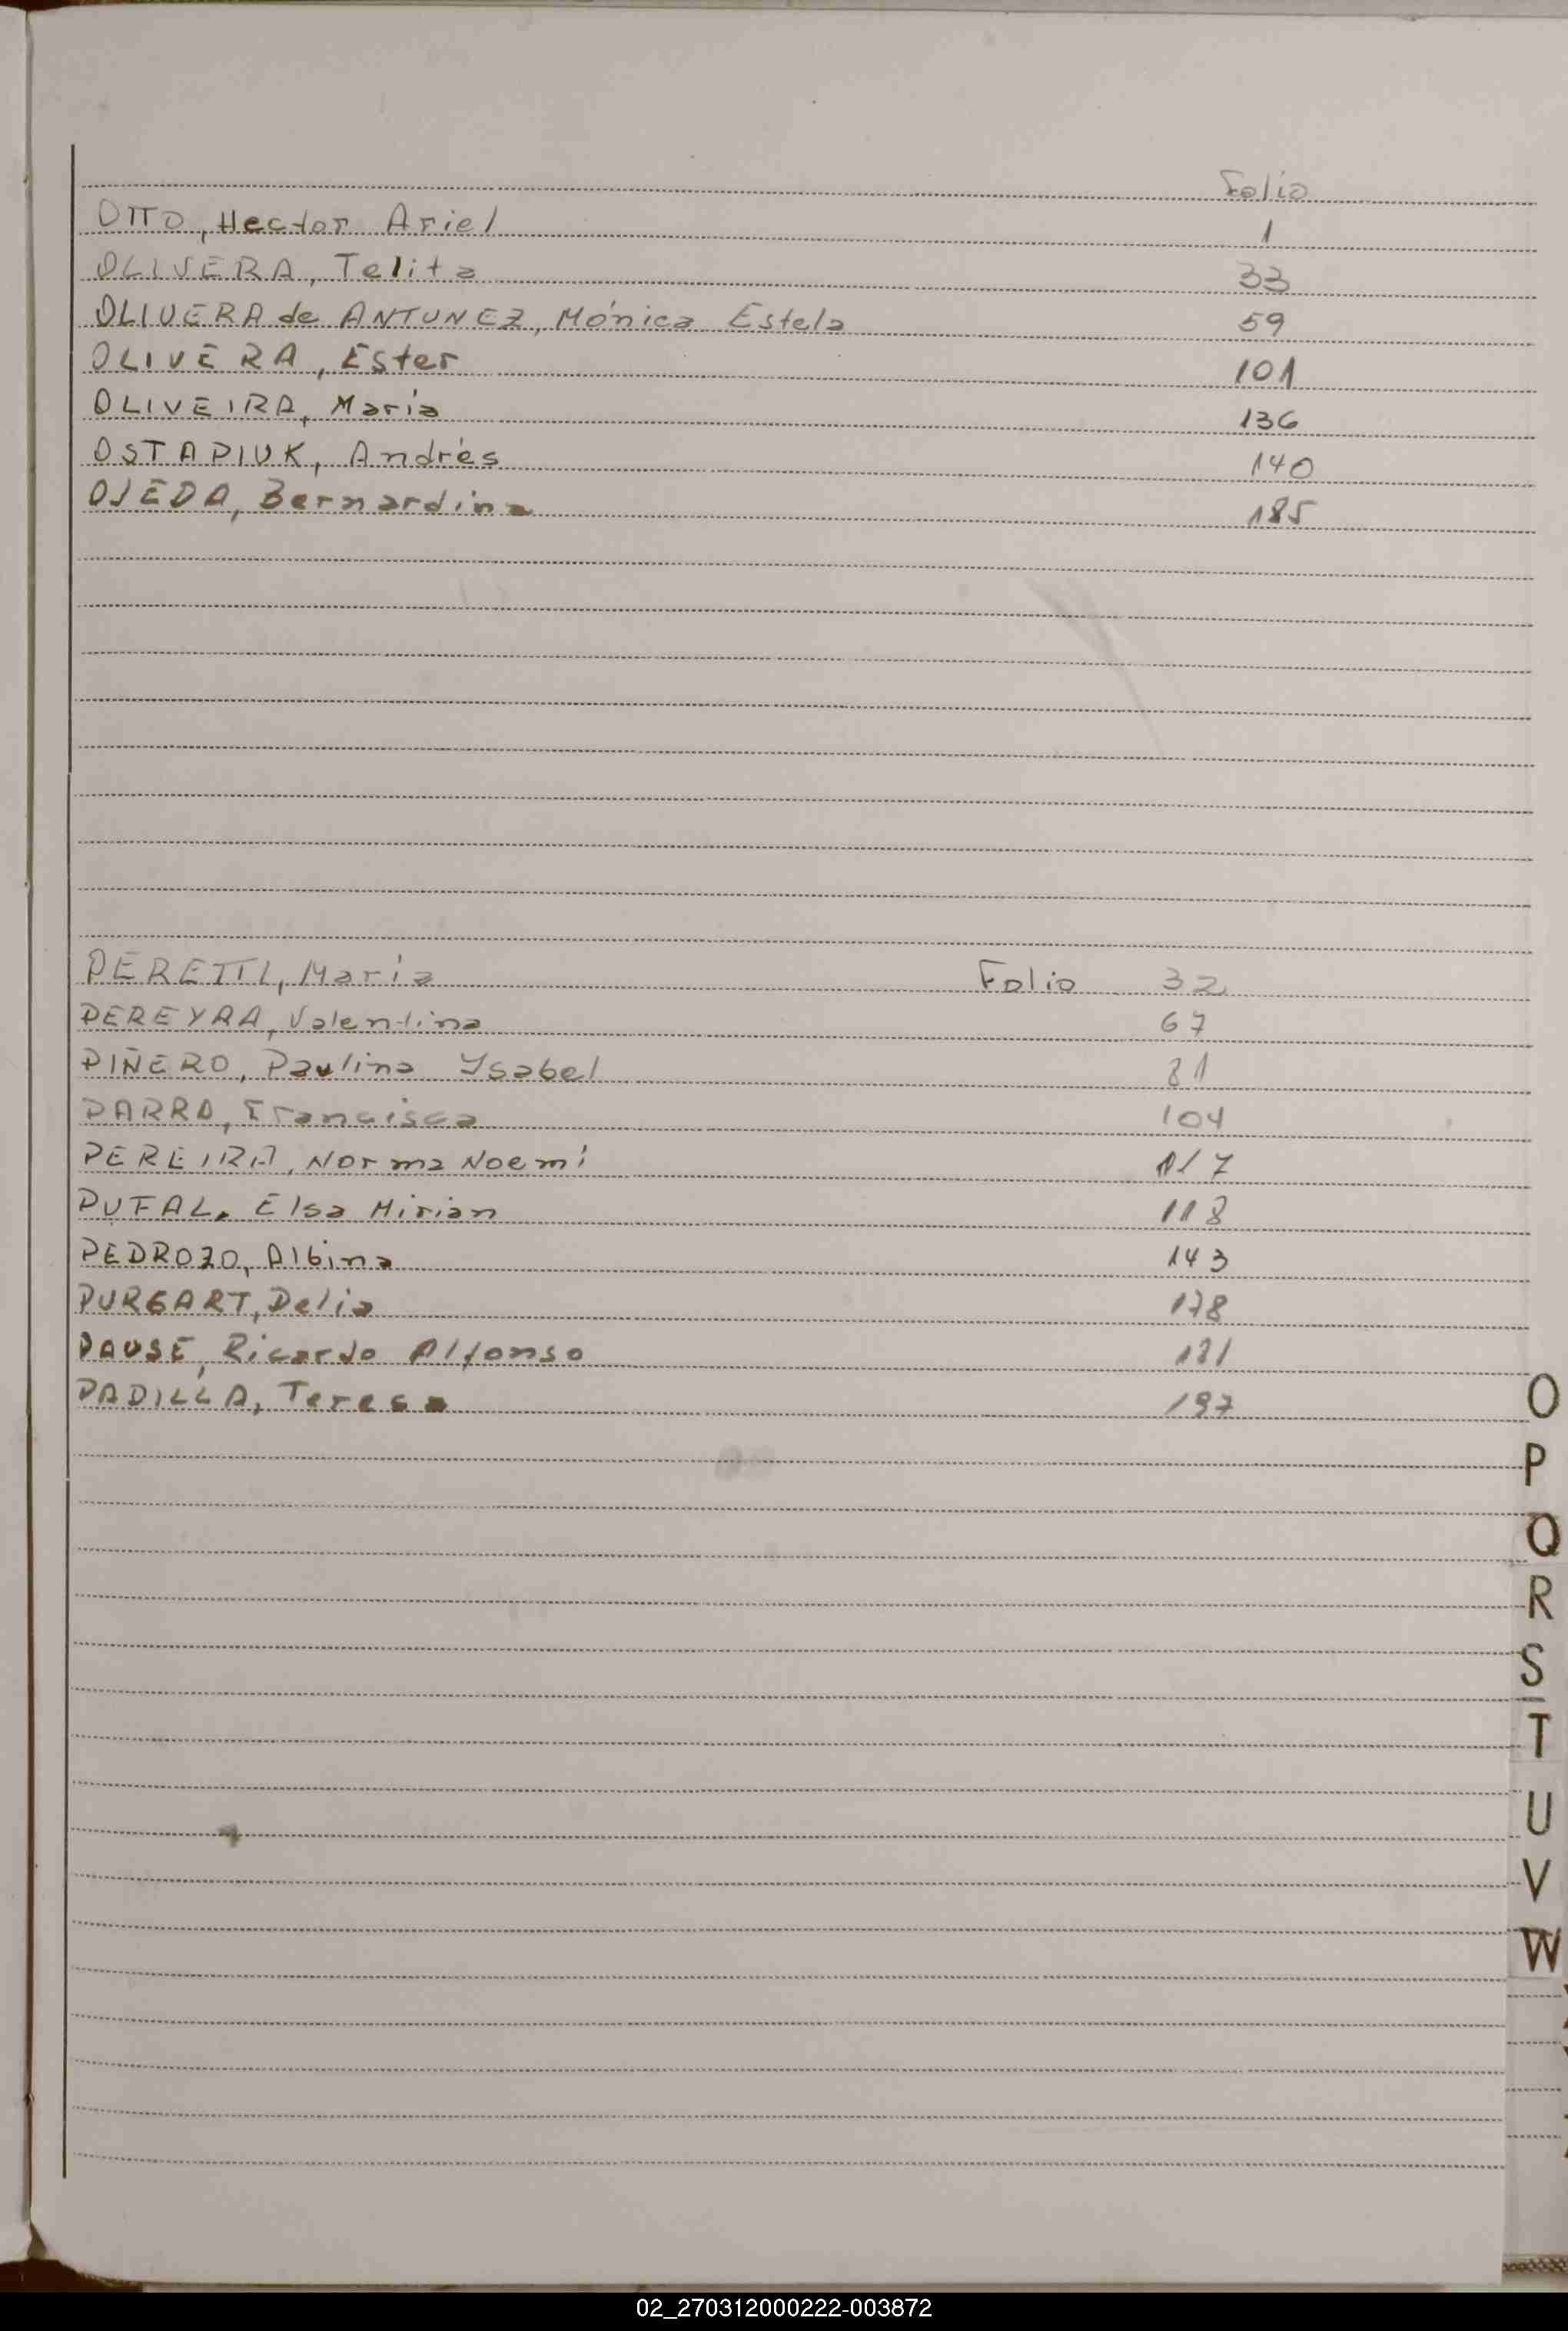 Folio
OTTO, Hector Ariel 1
OLIVERA, Telita 33
OLIVERA de ANTUNEZ, Mónica Estela 59
OLIVERA, Ester 101
OLIVEIRA, María 136
OSTAPIUK, Andrés 140
OJEDA, Bernardina 185
PERETTI, María Folio 32
PEREYRA, Valentina 67
PIÑERO, Paulina Ysabel 81
PARRA, Francisca 104
PEREIRA, Norma Noemí 117
PUFAL, Elsa Mirian 118
PEDROZO, Albina 143
PURGART, Delia 178
PAUSE, Ricardo Alfonso 181
PADILLA, Teresa 197
O
P
Q
R
S
T
U
V
W
02_270312000222-003872